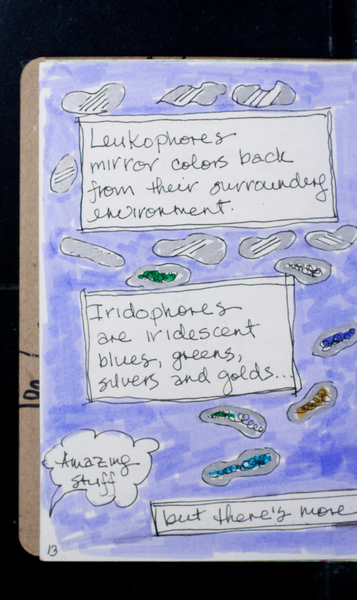 Leukophores
mirror colors back
from their surrounding
environment.
Iridophores
are iridescent
blues, greens,
silvers and golds...
Amazing
stuff
but there's more
13